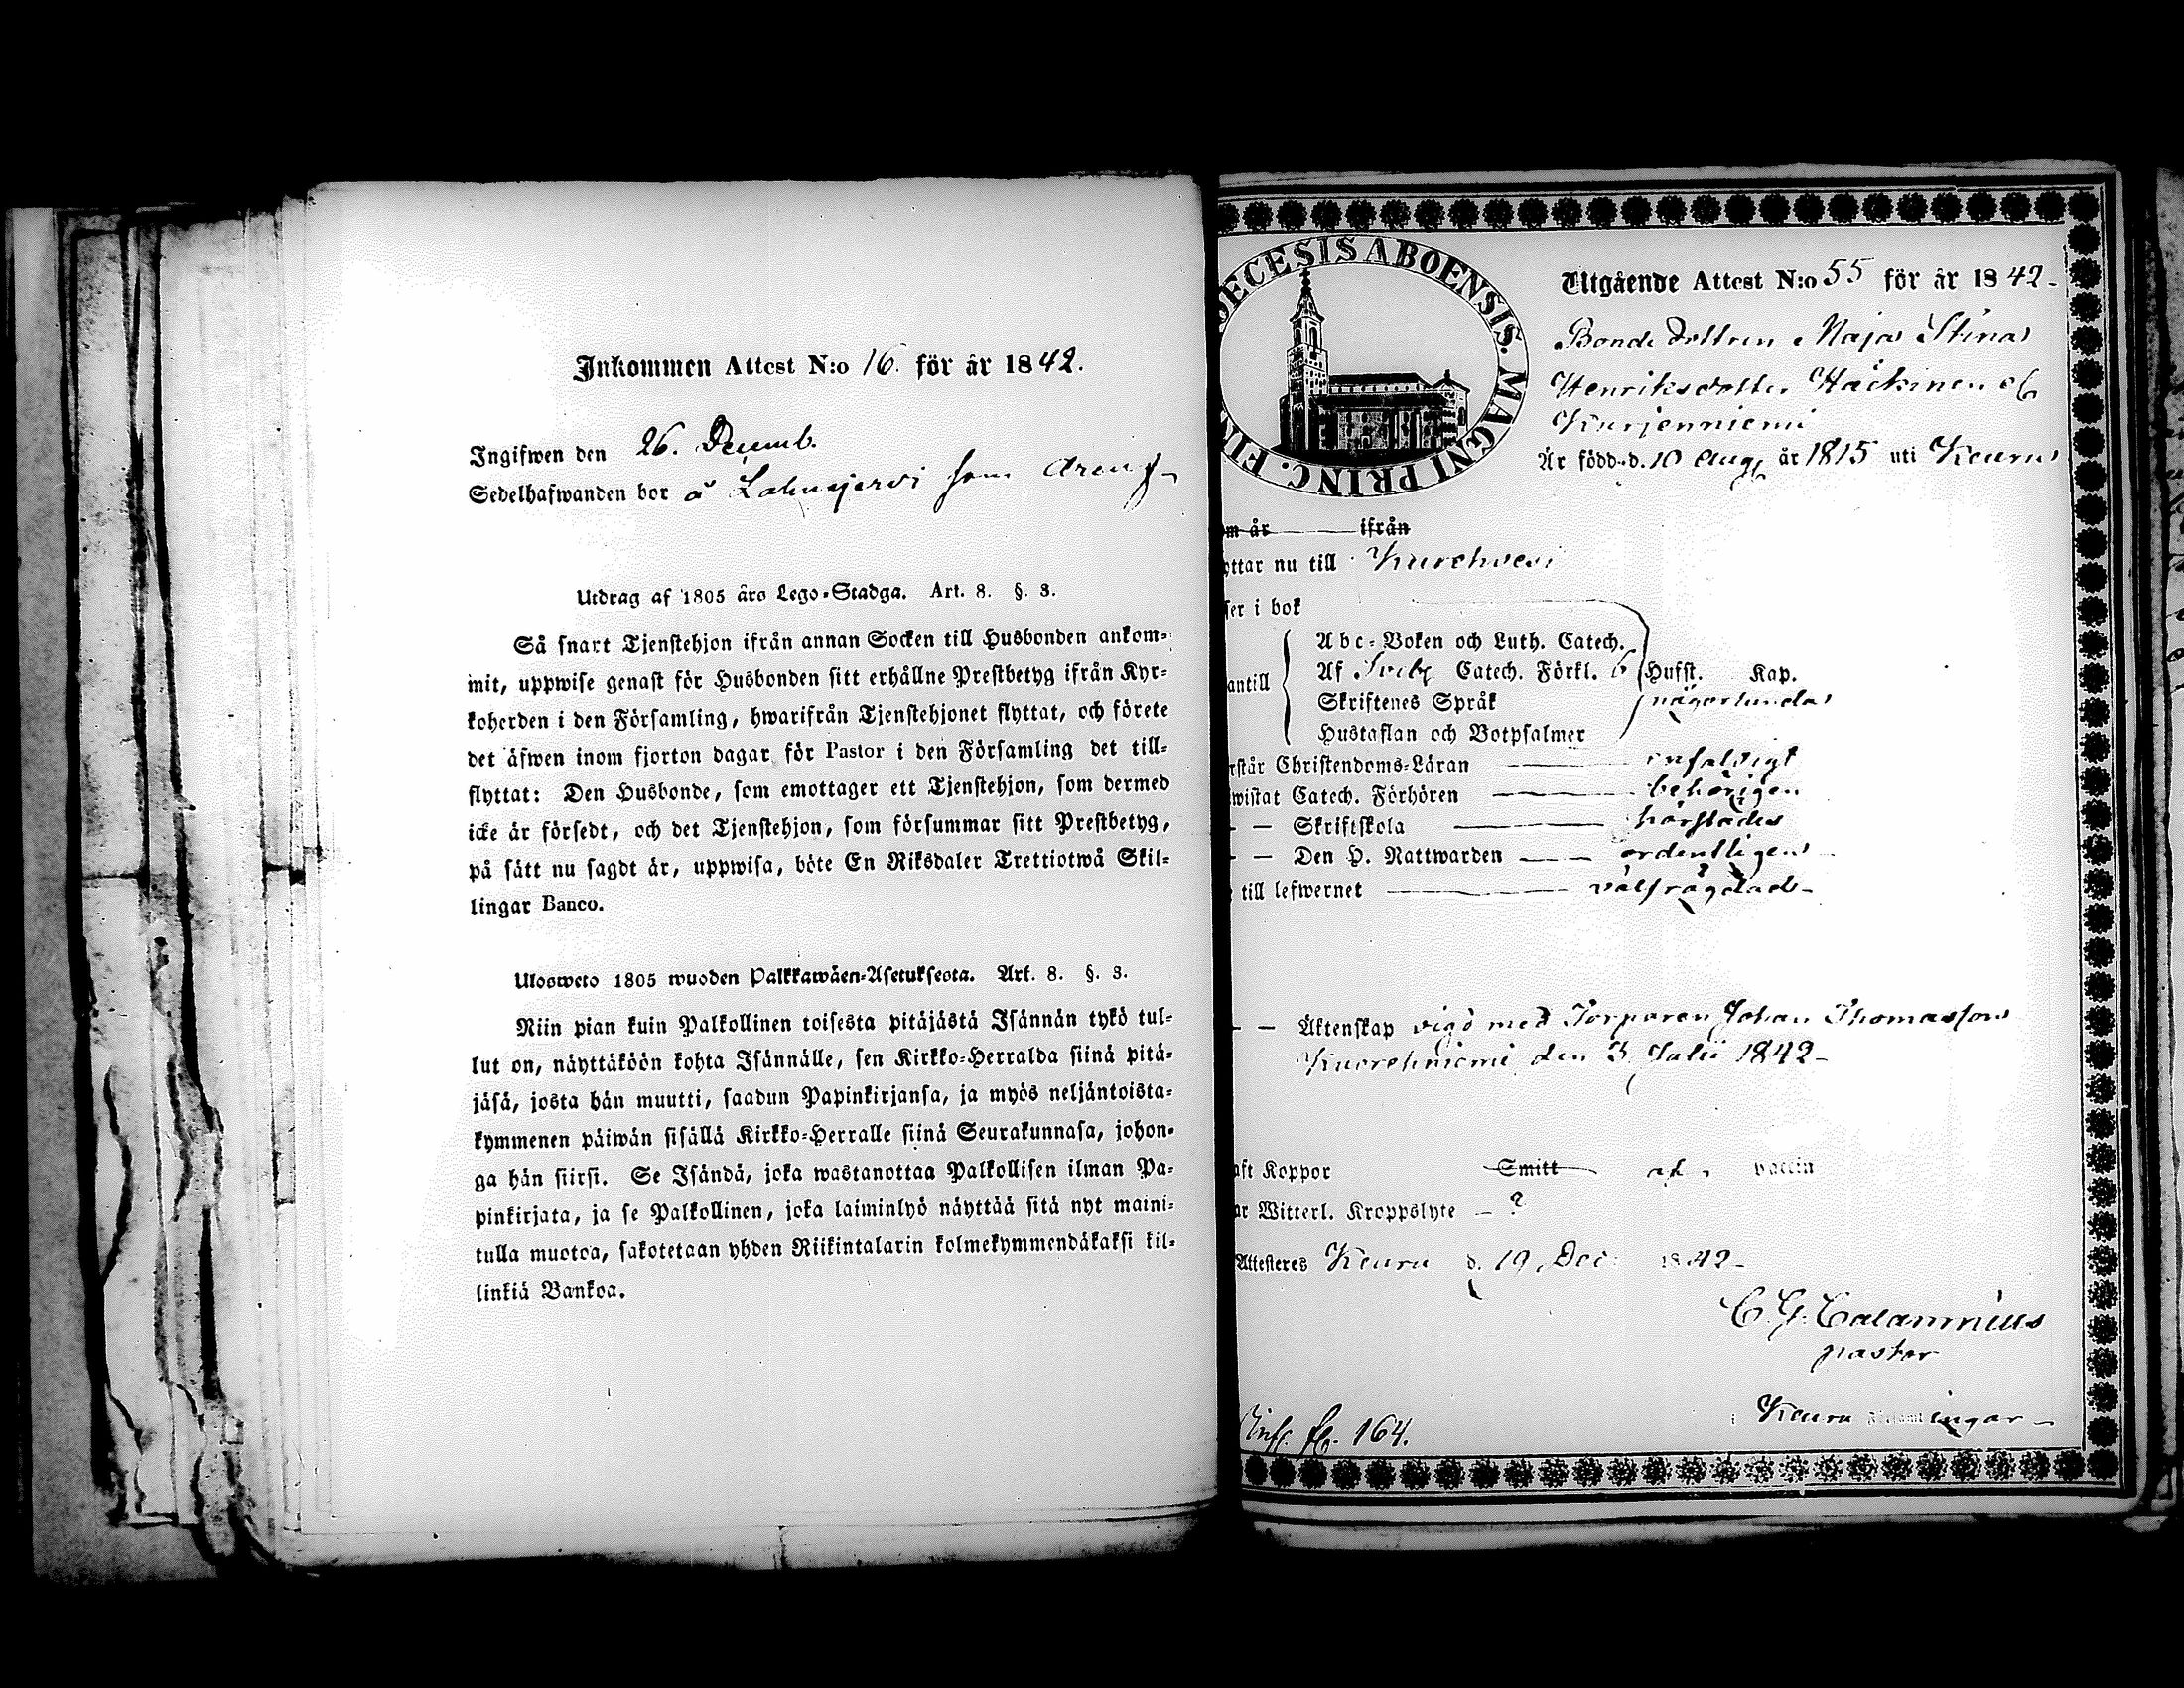 Inkommen Attest N:o 16. för år 1842.
Ingifwen den 26. Decemb.
Sedelhafwanden bor å Lahnajervi som dreng
Utdrag af 1805 års Lego-Stadga. Art. 8. §. 3.
Så snart Tjenstehjon ifrån annan Socken till Husbonden ankom-
mit, uppwise genast för Husbonden sitt erhållne Prestbetyg ifrån Kyr-
koherden i den Församling, hwarifrån Tjenstehjonet flyttat, och förete
det äfwen inom fjorton dagar för Pastor i den Församling det till-
flyttat: Den Husbonde, som emottager ett Tjenstehjon, som dermed
icke är försedt, och det Tjenstehjon, som försummar sitt Prestbetyg,
på sätt nu sagdt är, uppwisa, böte En Riksdaler Trettiotwå Skil-
lingar Banco.
Ulosweto 1805 wuoden Palkkawäen-Asetuksesta. Art. 8. §. 3.
Niin pian kuin Palkollinen toisesta pitäjästä Isännän tykö tul-
lut on, näyttäköön kohta Isännälle, sen Kirkko-Herralda siinä pitä-
jäsä, josta hän muutti, saadun Papinkirjansa, ja myös neljäntoista-
kymmenen päiwän sisällä Kirkko-Herralle siinä Seurakunnasa, johon-
ga hän siirsi. Se Isändä, joka wastanottaa Palkollisen ilman Pa-
pinkirjata, ja se Palkollinen, joka laiminlyö näyttää sitä nyt maini-
tulla muotoa, sakotetaan yhden Riikintalarin kolmekymmendäkaksi kil-
linkiä Bankoa.
DECESIS ABOENSIS. MAGNI PRINC. FIN
Utgående Attest N:o 55 för år 1842-
Bonde dottren Maja Stina
Henriksdotter Häckinen
Kurjenniemi
Är född d. 10 Aug år 1815 uti Keuru
m år ifrån
ottar nu till Kurehvesi
ser i bok
antill
Abc-Boken och Luth. Catech.
Af Sveb Catech. Förkl. 6 Hufst. Kap.
Skriftenes Språk någorlunda
Hustaflan och Botpsalmer
rstår Christendoms-Läran enfaldigt
wistat Catech. Förhören behörigen
- — Skriftskola härstädes
- — Den H. Nattwarden ordentligen
till lefwernet välfrägdad-
- — Äktenskap vigd med Torparen Johan Thomasson
Kuorehniemi den 3 Julii 1842-
aft Koppor Smitt af vaccin
ar Witterl. Kroppslyte — ?
Attesteres Keuru d. 19 Dec: 1842-
C. G. Calamnius
pastor
i Keuru Församlingar-
Inf. fl. 164.